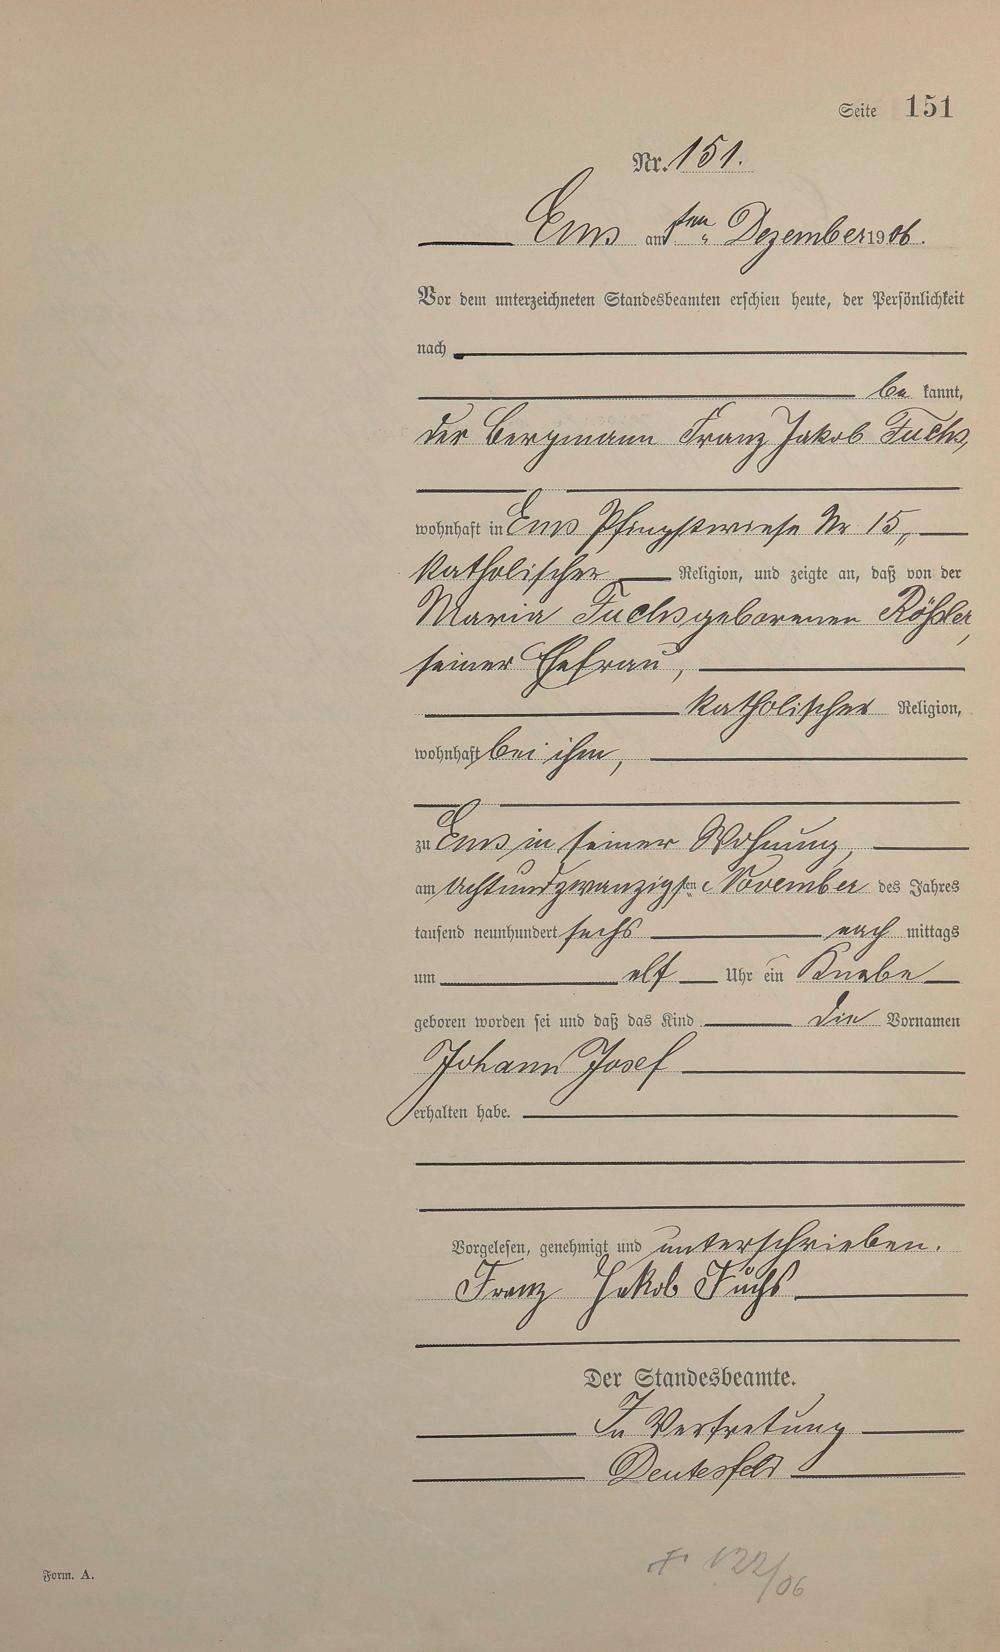 Seite 151
Nr. 151.
Ems am 1ten Dezember 1906.
Vor dem unterzeichneten Standesbeamten erschien heute, der Persönlichkeit
nach
be kannt,
der Bergmann Franz Jakob Fuchs,
wohnhaft in Ems Pfingstwiese Nr 15,
katholischer Religion, und zeigte an, daß von der
Maria Fuchs geborenen Rößler,
seiner Ehefrau,
katholischer Religion,
wohnhaft bei ihm,
zu Ems in seiner Wohnung,
am achtundzwanzigsten November des Jahres
tausend neunhundert sechs nach mittags
um elf Uhr ein Knabe
geboren worden sei und daß das Kind die Vornamen
Johann Josef
erhalten habe.
Vorgelesen, genehmigt und unterschrieben.
Franz Jakob Fuchs
Der Standesbeamte.
In Vertretung
Deutesfeld
† 122/06
Form. A.